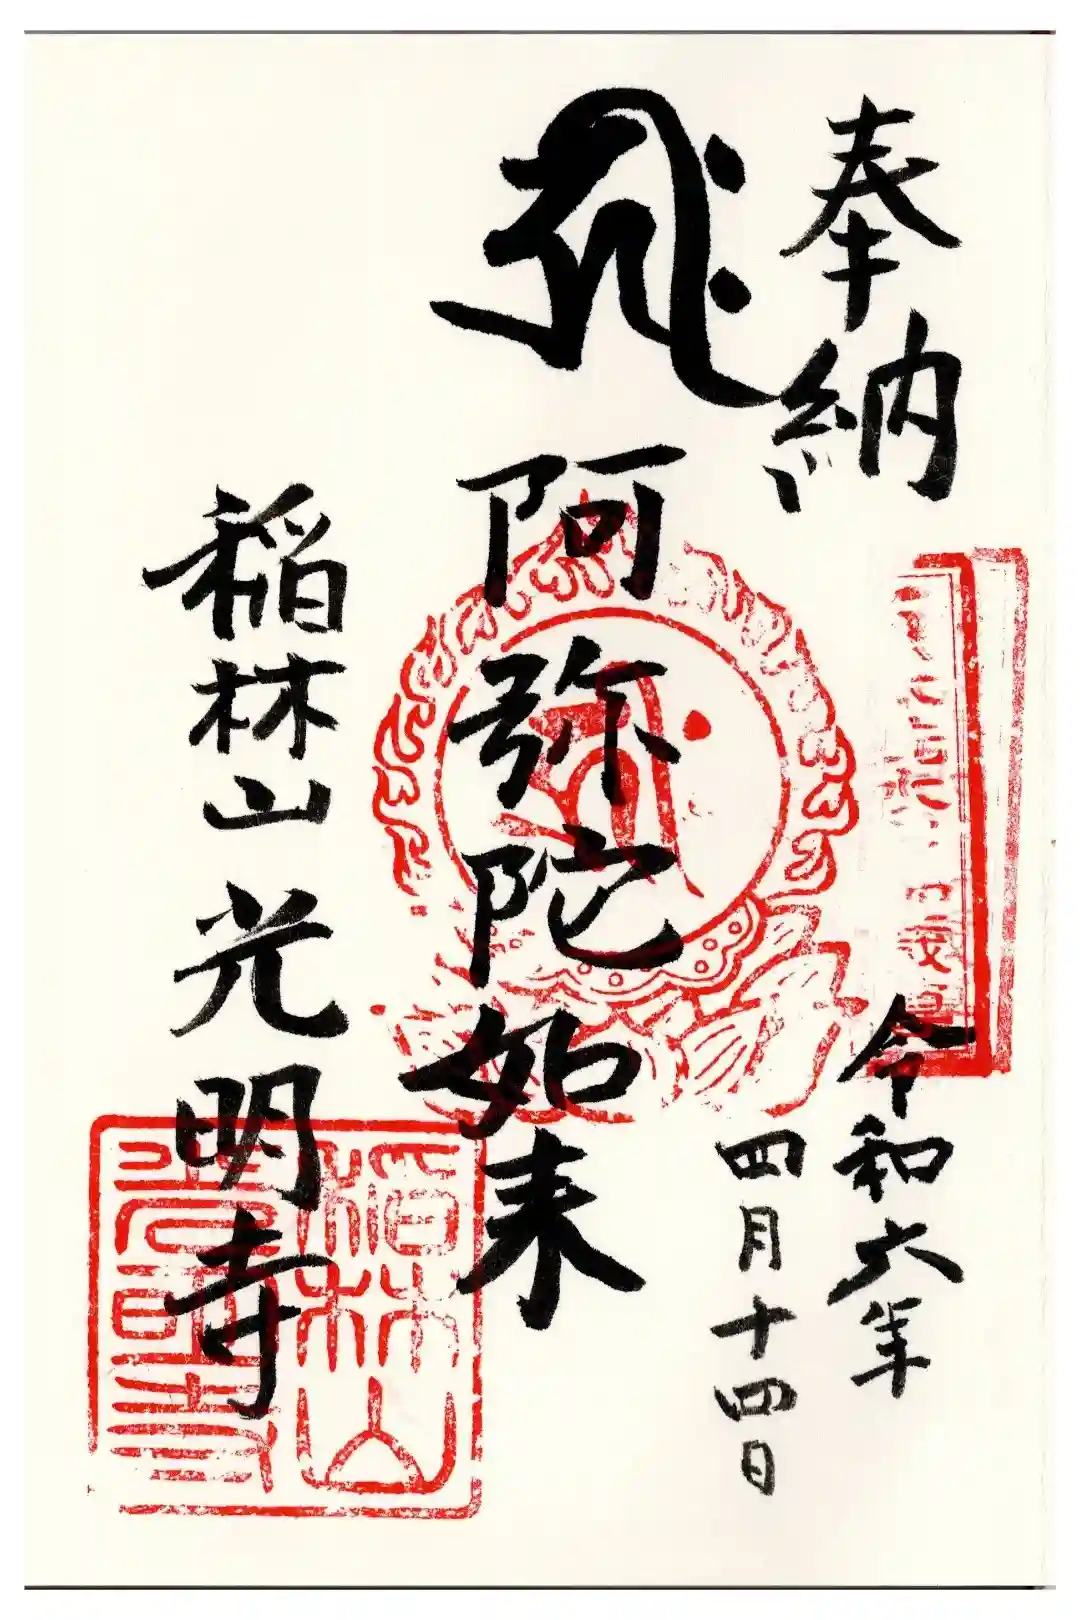 奉納
令和六年
四月十四日
𑖮𑖿𑖨𑖱𑖾
阿弥陀如来
稲林山
光明寺
稲林山
光明寺